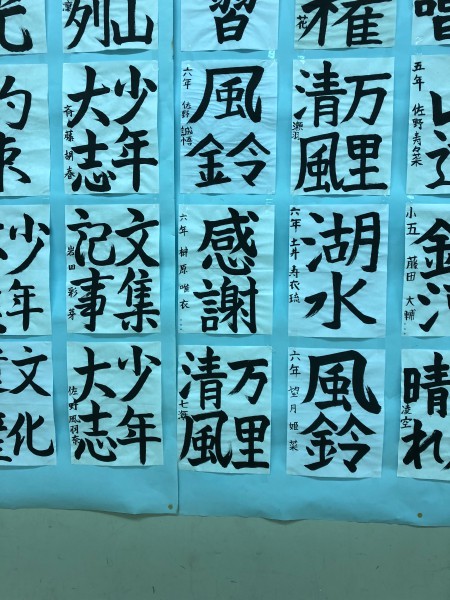 列山
習
花
権
約束
少年
大志
斉藤 胡春
風鈴
六年 佐野 誠悟
万里
清風
五年 佐野 寿々菜
少年
文集
記事
岩田 彩芽
感謝
六年 榊原 唯衣
湖水
六年 土井 寿衣琉
小五 藤田 大輔
文化
少年
大志
佐野 風羽奈
万里
清風
七海
風鈴
六年 望月 姫菜
晴れ
凌空